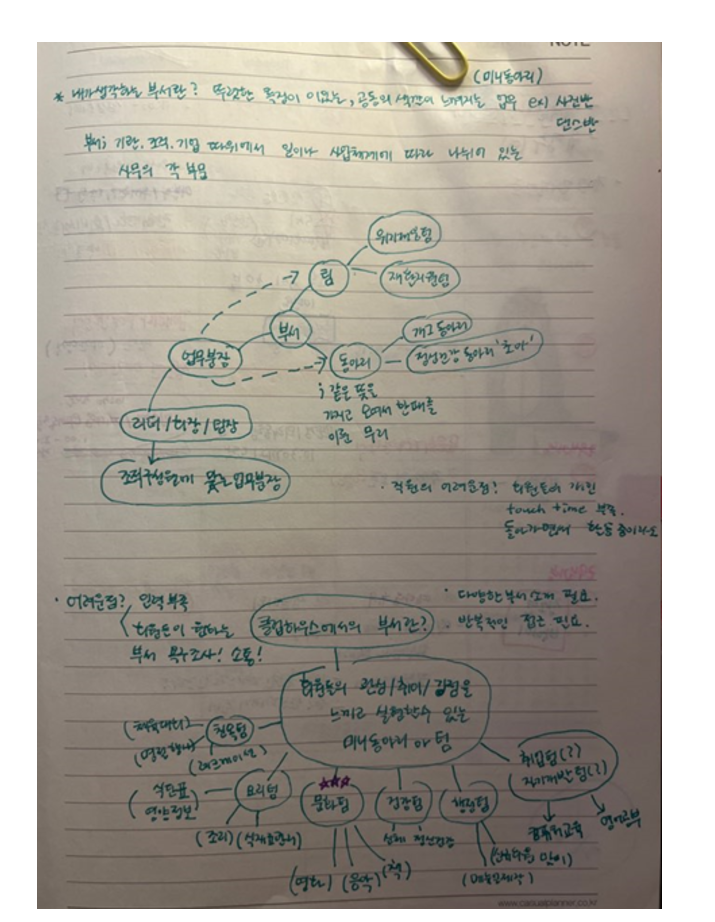 NOTE
(미니동아리)
* 내가생각하는 부서란? 뚜렷한 목적이 있는, 공동의 느껴지는 업무 ex) 사진반
댄스반
부서; 기관. 조직. 기업 따위에서 일이나 사업체계에 따라 나뉘어 있는
사무의 각 부문
위기개입팀
팀
재편지원팀
부서
개그 동아리
업무분장
동아리
정신건강 동아리
; 같은 뜻을
가지고 모여서 한패를
이룬 무리
리더 / 회장 / 팀장
조직구성원에게 맞는 업무분장
· 직원의 어려운점? 회원들의 개인
touch time 부족.
돌아가면서 활동 중이나
· 어려운점? 인력부족
회원들이 원하는
부서 욕구조사! 소통!
클럽하우스에서의 부서란?
· 다양한 부서 소개 필요.
· 반복적인 접근 필요.
회원들의 관심/취미/강점을
느끼고 실현할수 있는
미니동아리 or 팀
(체육대회)
친목팀
(레크레이션)
식단표
영양정보
요리팀
(조리)
문화팀
(영화) (음악) (책)
건강팀
신체 정신건강
행정팀
취업팀(?)
자기개발팀(?)
컴퓨터교육
영어공부
www.casualplanner.co.kr